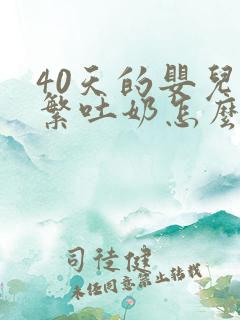 40天的嬰兒
繁吐奶怎麼
司徒健
未经同意禁止转载